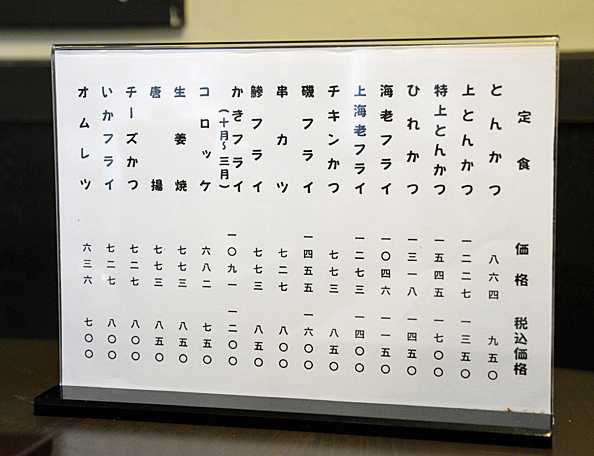 定食 価格 税込価格
とんかつ 八六四 九五〇
上とんかつ 一二二七 一三五〇
特上とんかつ 一五四五 一七〇〇
ひれかつ 一三一八 一四五〇
海老フライ 一〇四六 一一五〇
上海老フライ 一二七三 一四〇〇
チキンかつ 七七三 八五〇
磯フライ 一四五五 一六〇〇
串カツ 七二七 八〇〇
鯵フライ 七七三 八五〇
かきフライ 一〇九一 一二〇〇
(十月~三月)
コロッケ 六八二 七五〇
生姜焼 七七三 八五〇
唐揚 七七三 八五〇
チーズかつ 七二七 八〇〇
いかフライ 七二七 八〇〇
オムレツ 六三六 七〇〇